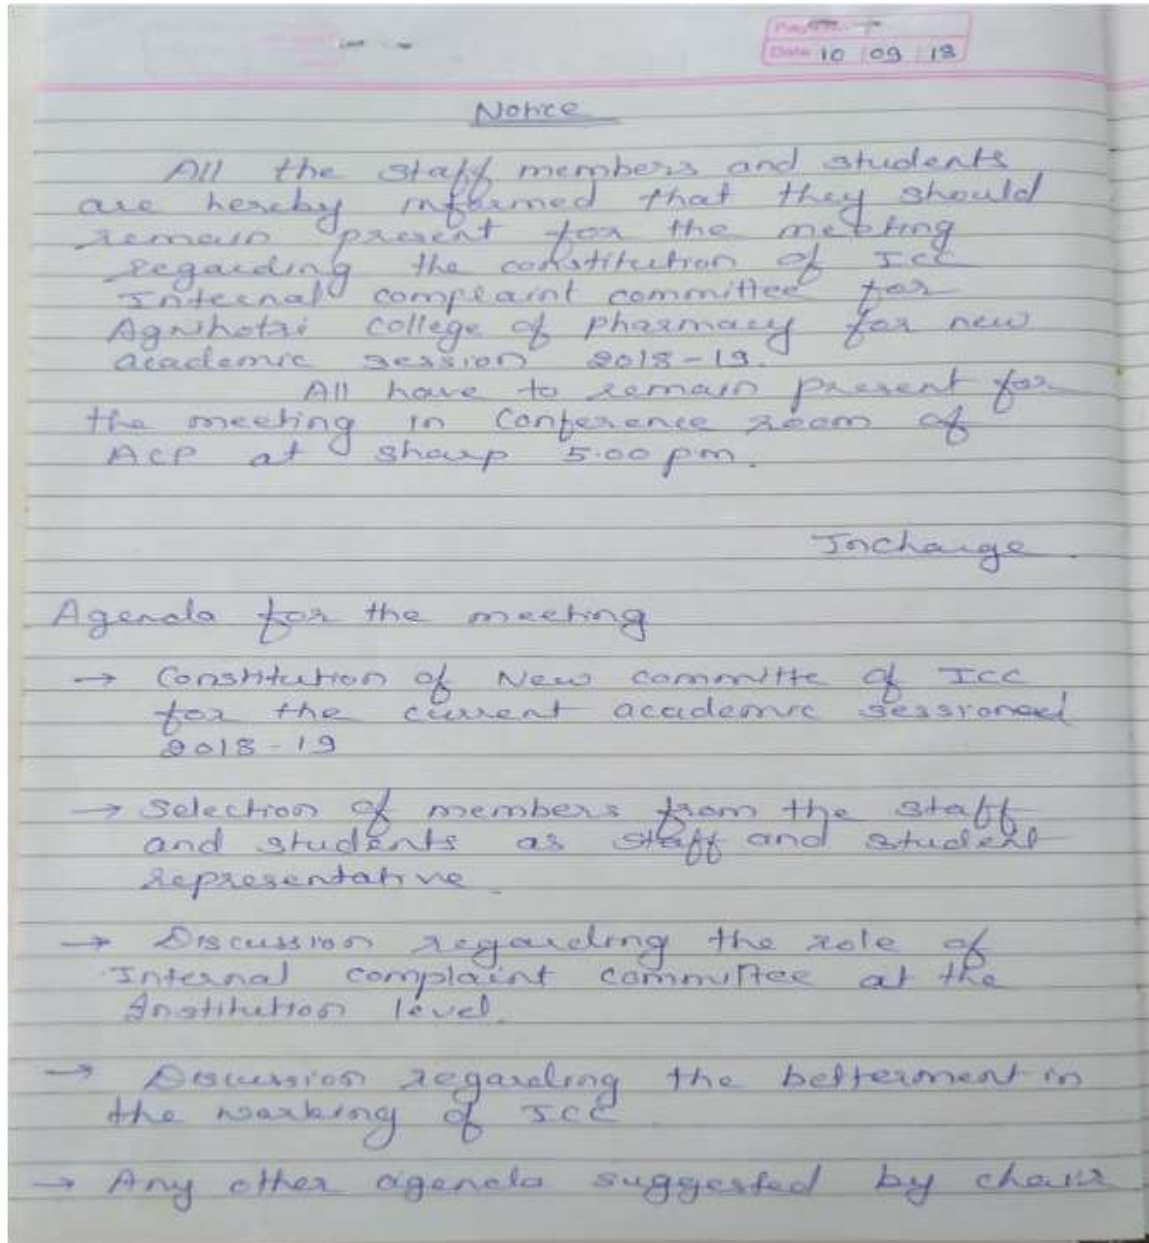 Date 10 09 18
Notice
All the staff members and students
are hereby informed that they should
remain present for the meeting
regarding the constitution of ICC
Internal complaint committee for
Agnihotri college of pharmacy for new
academic session 2018-19.
All have to remain present for
the meeting in Conference room of
ACP at sharp 5.00 pm.
Incharge.
Agenda for the meeting
→ Constitution of New committe of ICC
for the current academic session
2018-19
→ Selection of members from the staff
and students as staff and student
representative.
→ Discussion regarding the role of
Internal complaint committee at the
Institution level.
→ Discussion regarding the betterment in
the working of ICC
→ Any other agenda suggested by chair